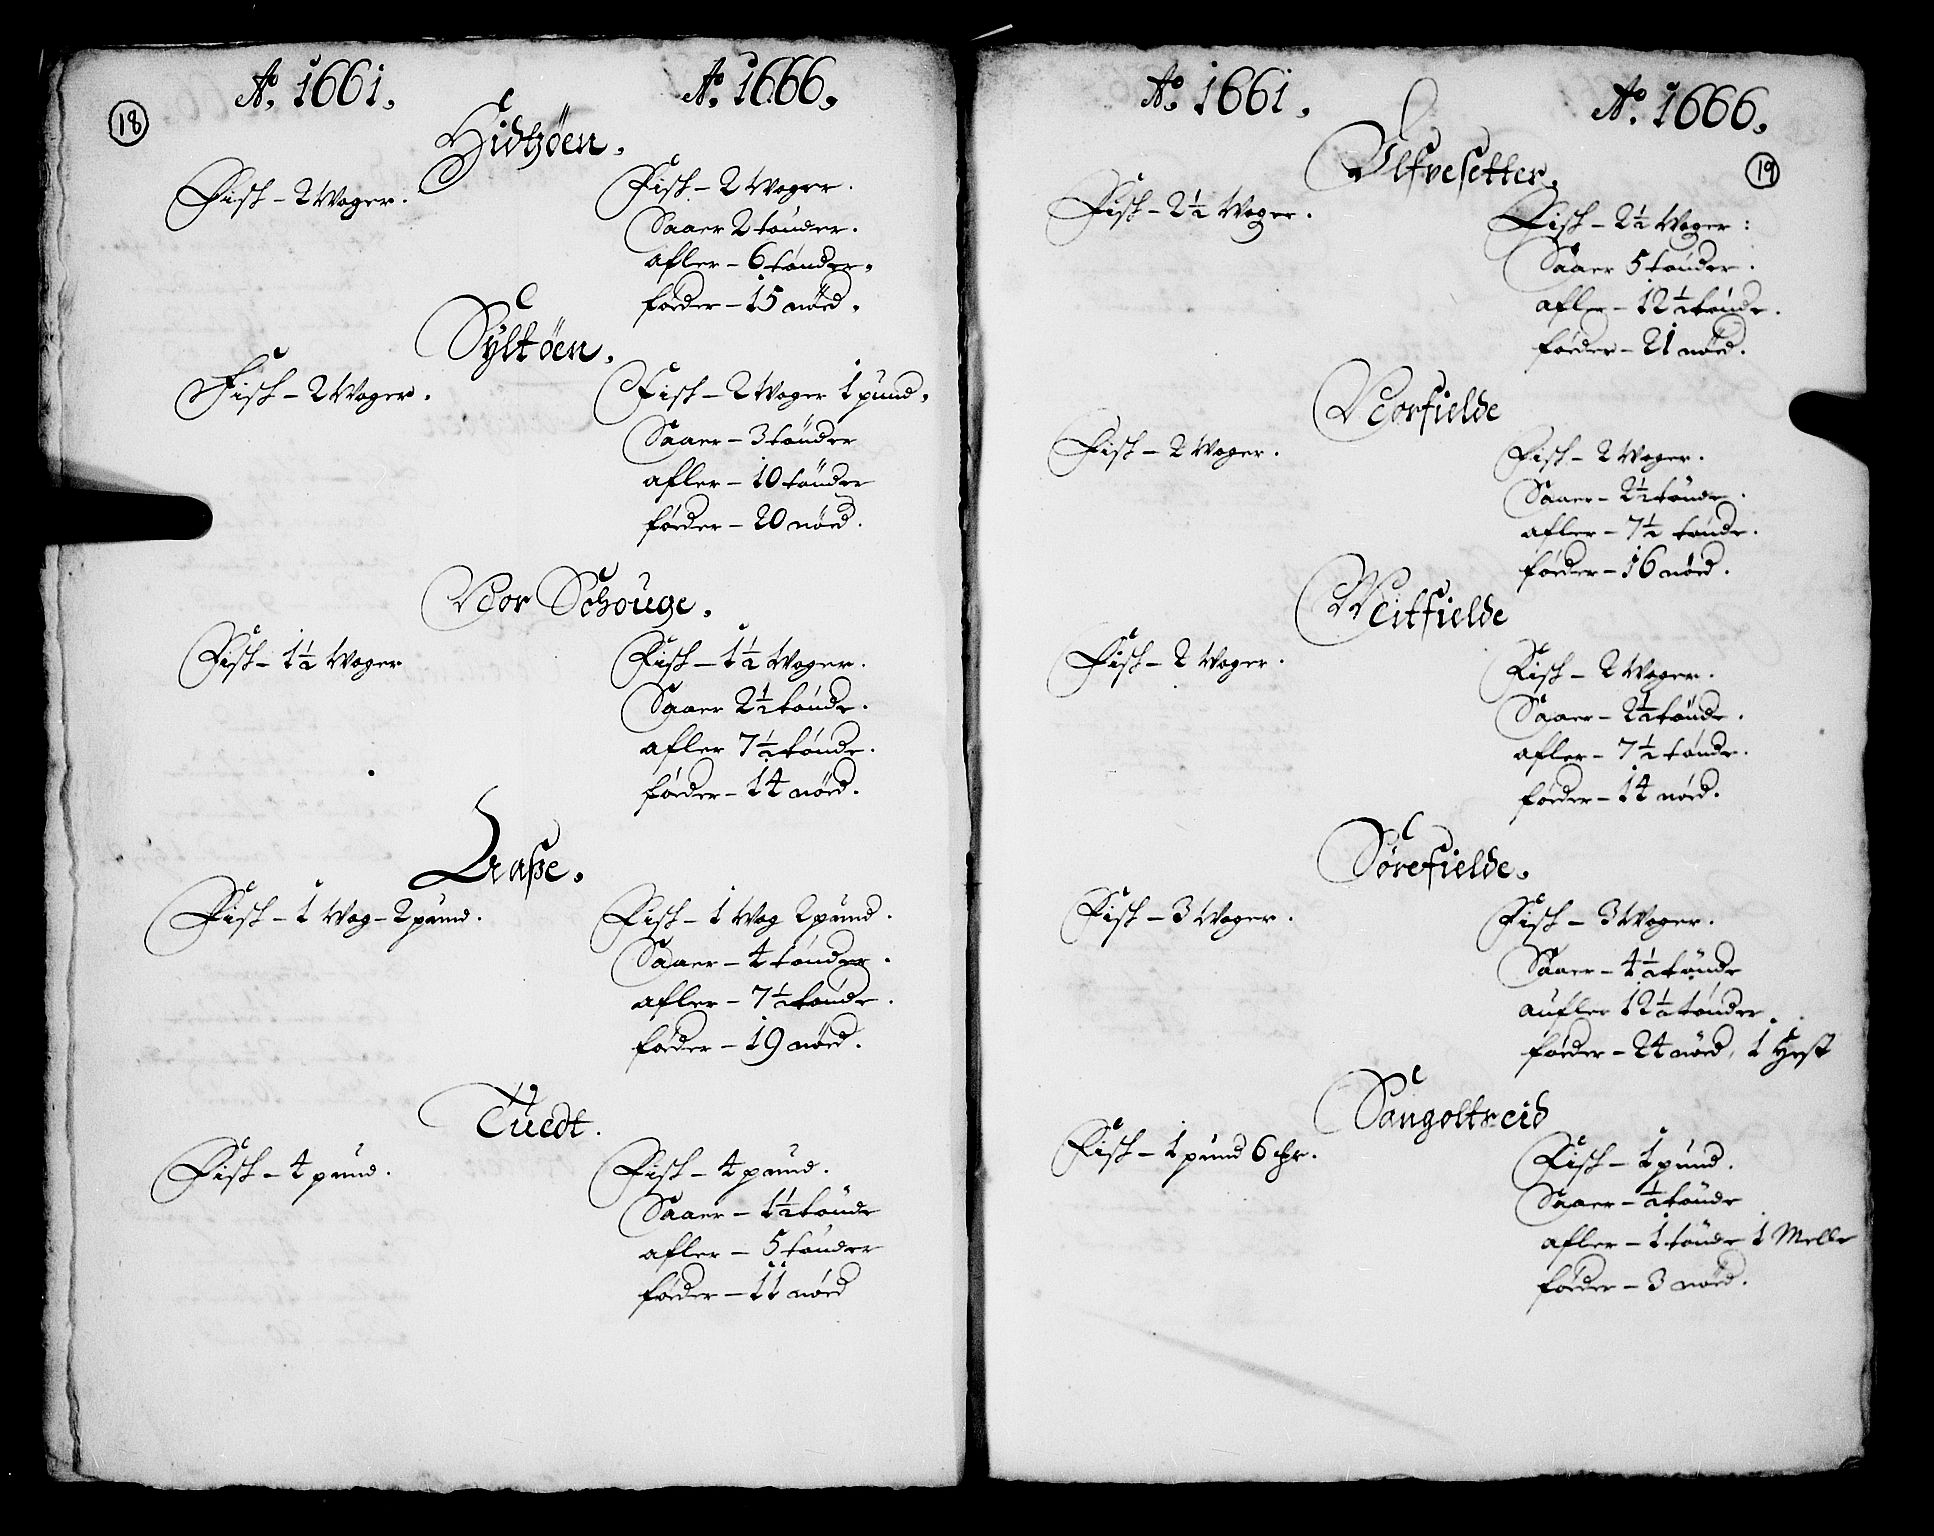 18
Ao. 1661. Ao. 1666.
Hidtzöen.
Fisk - 2 Woger. Fisk - 2 Woger.
Saaer 2 tönder.
afler - 6 tönder.
föeder - 15 nöed.
Syltöen.
Fisk - 2 Woger. Fisk - 2 Woger 1 pund.
Saaer - 3 tönder
afler - 10 tönder
föeder - 20 nöed.
Vor Schouge.
Fisk - 1½ Woger Fisk - 1½ Woger.
Saaer 2½ tönde.
afler 7½ tönde.
föeder - 14 nöed.
Aaße.
Fisk - 1 Wog - 2 pund. Fisk - 1 Wog 2 pund.
Saaer - 4 tönder.
afler - 7½ tönde.
föeder - 19 nöed.
Tuedt.
Fisk - 4 pund. Fisk - 4 pund.
Saaer - 1½ tönde
afler - 5 tönder
föeder - 11 nöed
Ao. 1661. Ao. 1666.
19
Elfvesetter.
Fisk - 2½ Woger. Fisk - 2½ Woger:
Saaer 5 tönder.
afler - 12½ tönde.
föeder - 21 nöed.
Norfielde
Fisk - 2 Woger. Fisk - 2 Woger.
Saaer - 2½ tönde.
afler - 7½ tönde.
föeder - 16 nöed.
Meitfielde
Fisk - 2 Woger. Fisk - 2 Woger.
Saaer - 2½ tönde.
afler - 7½ tönde.
föeder - 14 nöed.
Sörefielde.
Fisk - 3 Woger. Fisk - 3 Woger.
Saaer - 4½ tönde
aufler 12½ tönder.
föeder - 24 nöed, 1 Hest
Sangoltreid
Fisk - 1 pund 6 Fisk - 1 pund.
Saaer - ½ tönde
afler - 1 tönde 1 Melle
föeder - 3 nöed.